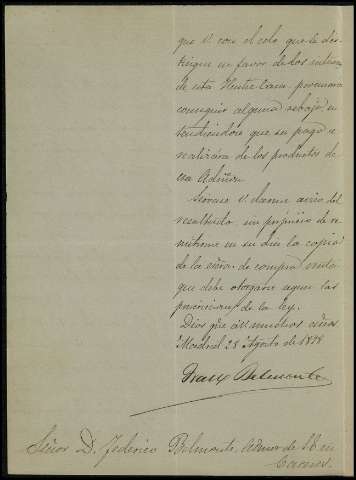 que V. con el celo que le dis-
tingue en favor de los intereses
de esta Ilustre Casa, procurara
conseguir alguna rebaja en-
tendiendose que su pago se
realizará de los productos de
esa Admon.
Sirvase V. darme aviso del
resultado sin perjuicio de re
mitirme en su dia la copia
de la escra. de compra venta
que debe otorgarse segun las
prescripciones de la ley.
Dios gue. á V. muchos años
Madrid 28 Agosto de 1878
Belmonte
Señor D. Federico Belmonte, Admor de S.E. en